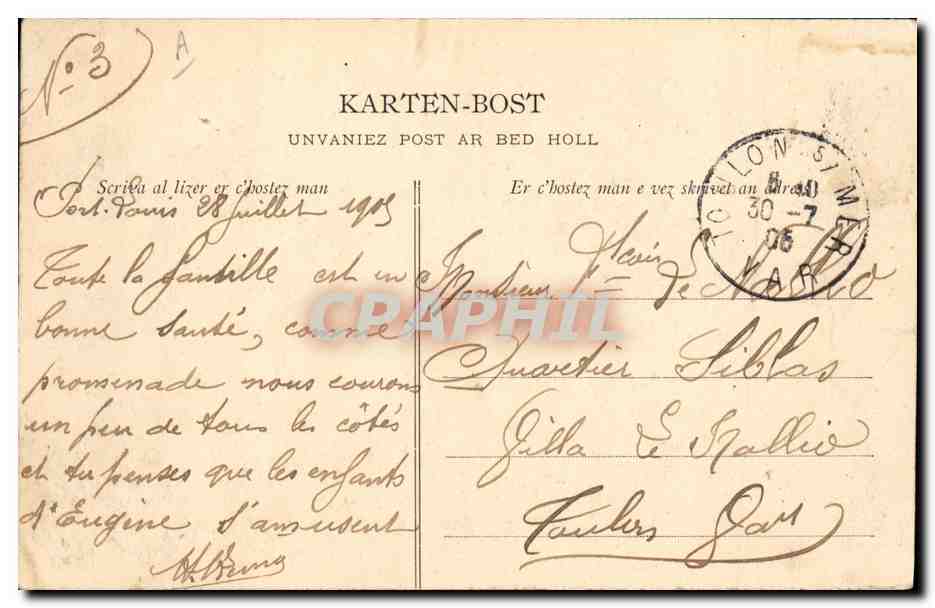 N° 3
A
KARTEN-BOST
UNVANIEZ POST AR BED HOLL
Scriva al lizer er c'hostez man
Er c'hostez man e vez skrivet an adres
TOULON S/ MER
30 -7
05
VAR
Port-Louis 28 Juillet 1905
Toute la famille est en
bonne santé, comme
promenade nous courons
un peu de tous les côtés
et tu penses que les enfants
d'Eugène s'amusent
Monsieur de
Quartier Siblas
Villa Le Rallic
Toulon Var
CRAPHIL